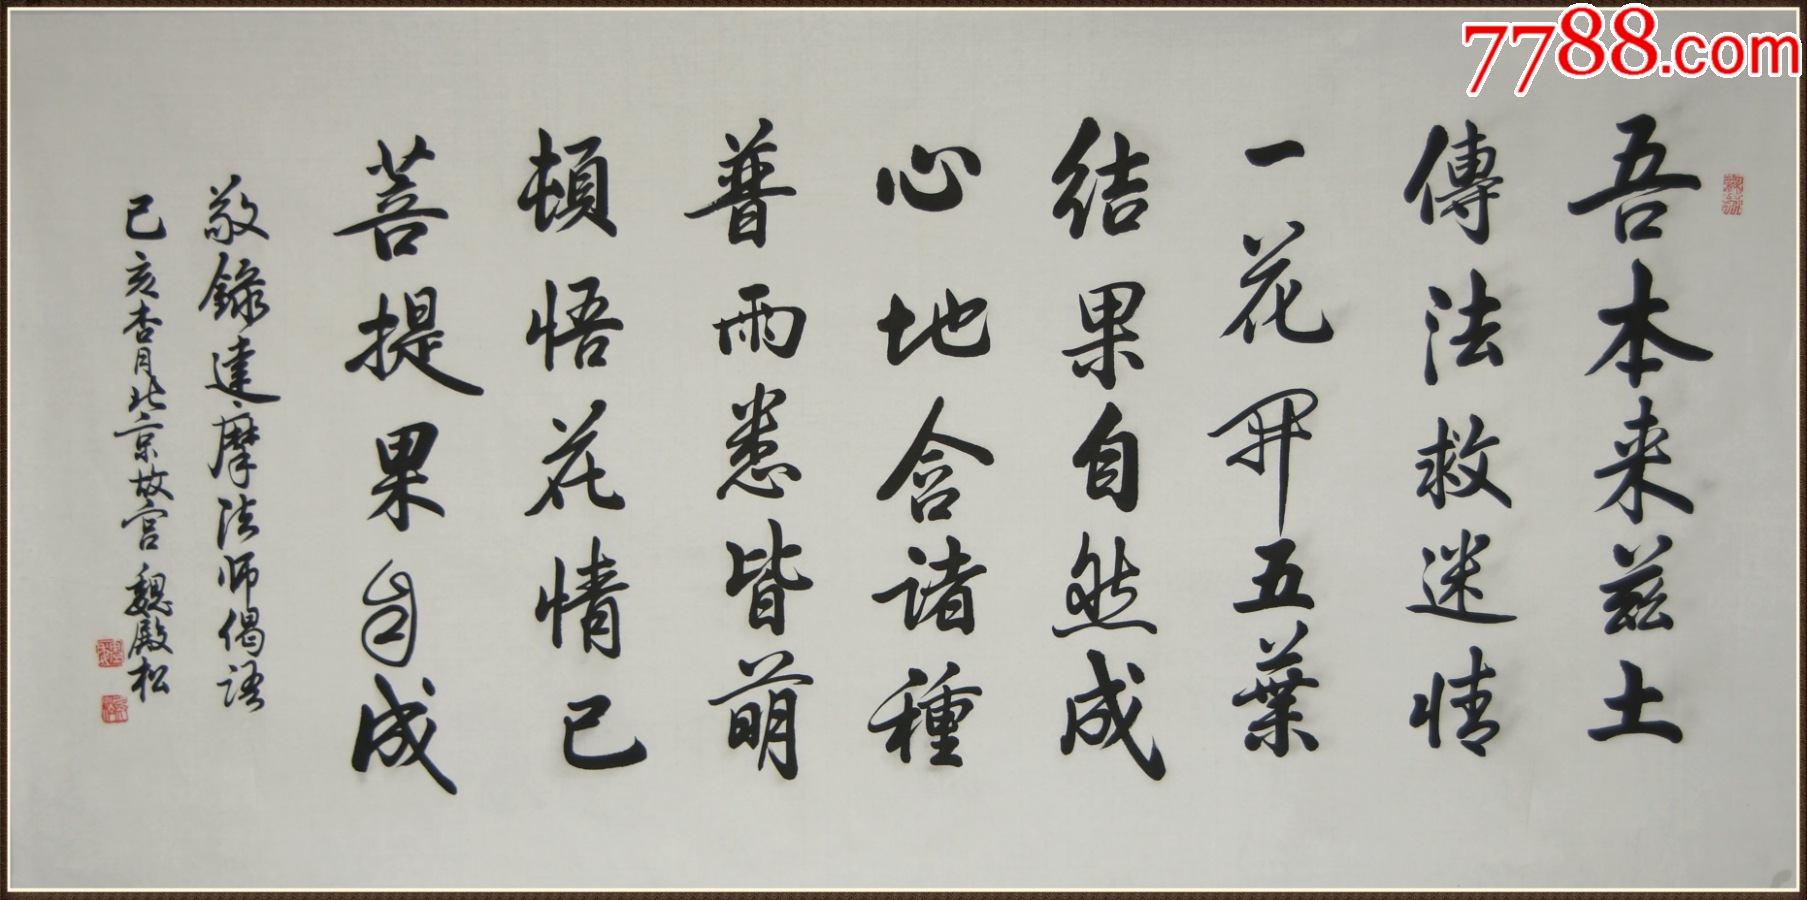 7788.com
吾本来茲土
傳法救迷情
一花开五葉
结果自然成
心地含诸種
普雨悉皆萌
頓悟花情已
菩提果自成
敬錄達摩法师偈语
己亥杏月北京故宫魏殿松